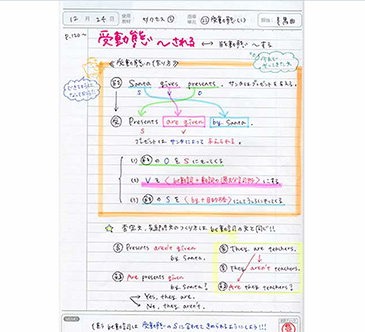 12月24日 使用教材 サクセス① 指導単元 受動態(1)
P.120~
受動態 ~される ↔ 能動態 ~する
《受動態の作り方》
Santa gives presents. サンタはプレゼントを与える。
S V O
Presents are given by Santa.
S V
プレゼントはサンタによって与えられる。
(1) のOをSにもってくる
(2) Vを〈be動詞+動詞の過去分詞形〉にする
(3) のSを〈by+目的格〉にして うしろにもってくる
☆ 否定文、疑問文のつくりかたはbe動詞の文と同じ!!
Presents aren't given by Santa.
Are presents given by Santa?
Yes, they are.
No, they aren't.
They are teachers.
They aren't teachers.
Are they teachers?
MEMO
be動詞は受動態のSに合わせてきめられるようにしよう!!!